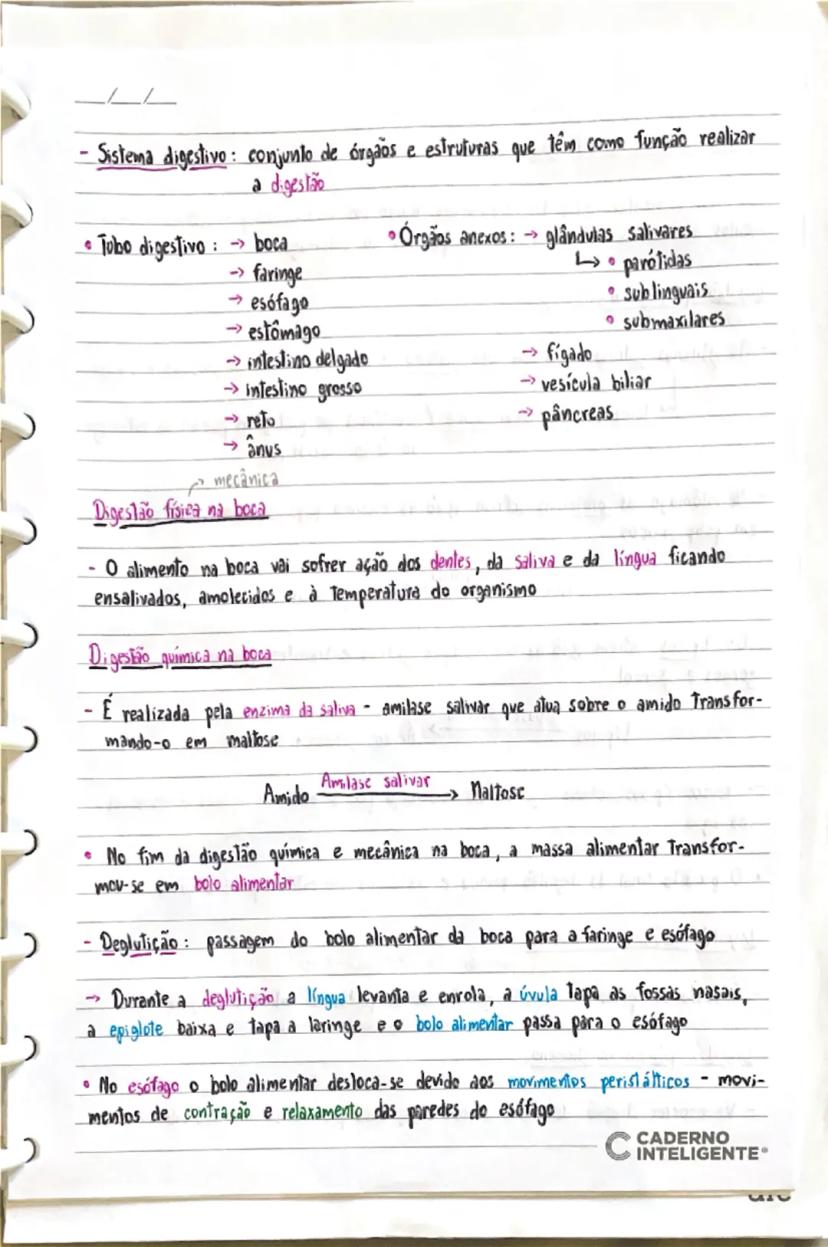 __/__/__
- Sistema digestivo: conjunto de órgãos e estruturas que têm como função realizar
a digestão
• Tubo digestivo: → boca
→ faringe
→ esófago
→ estômago
→ intestino delgado
→ intestino grosso
→ reto
→ ânus
• Órgãos anexos: → glândulas salivares
↳ • parótidas
• sublinguais
• submaxilares
→ fígado
→ vesícula biliar
→ pâncreas
→ mecânica
Digestão física na boca
- O alimento na boca vai sofrer ação dos dentes, da saliva e da língua ficando
ensalivados, amolecidos e à temperatura do organismo
Digestão química na boca
- É realizada pela enzima da saliva - amilase salivar que atua sobre o amido transfor-
mando-o em maltose
Amilase salivar
Amido → Maltose
• No fim da digestão química e mecânica na boca, a massa alimentar transfor-
mou-se em bolo alimentar
- Deglutição: passagem do bolo alimentar da boca para a faringe e esófago
→ Durante a deglutição a língua levanta e enrola, a úvula tapa as fossas nasais,
a epiglote baixa e tapa a laringe e o bolo alimentar passa para o esófago
• No esófago o bolo alimentar desloca-se devido aos movimentos peristálticos - movi-
mentos de contração e relaxamento das paredes do esófago
CADERNO
INTELIGENTE®